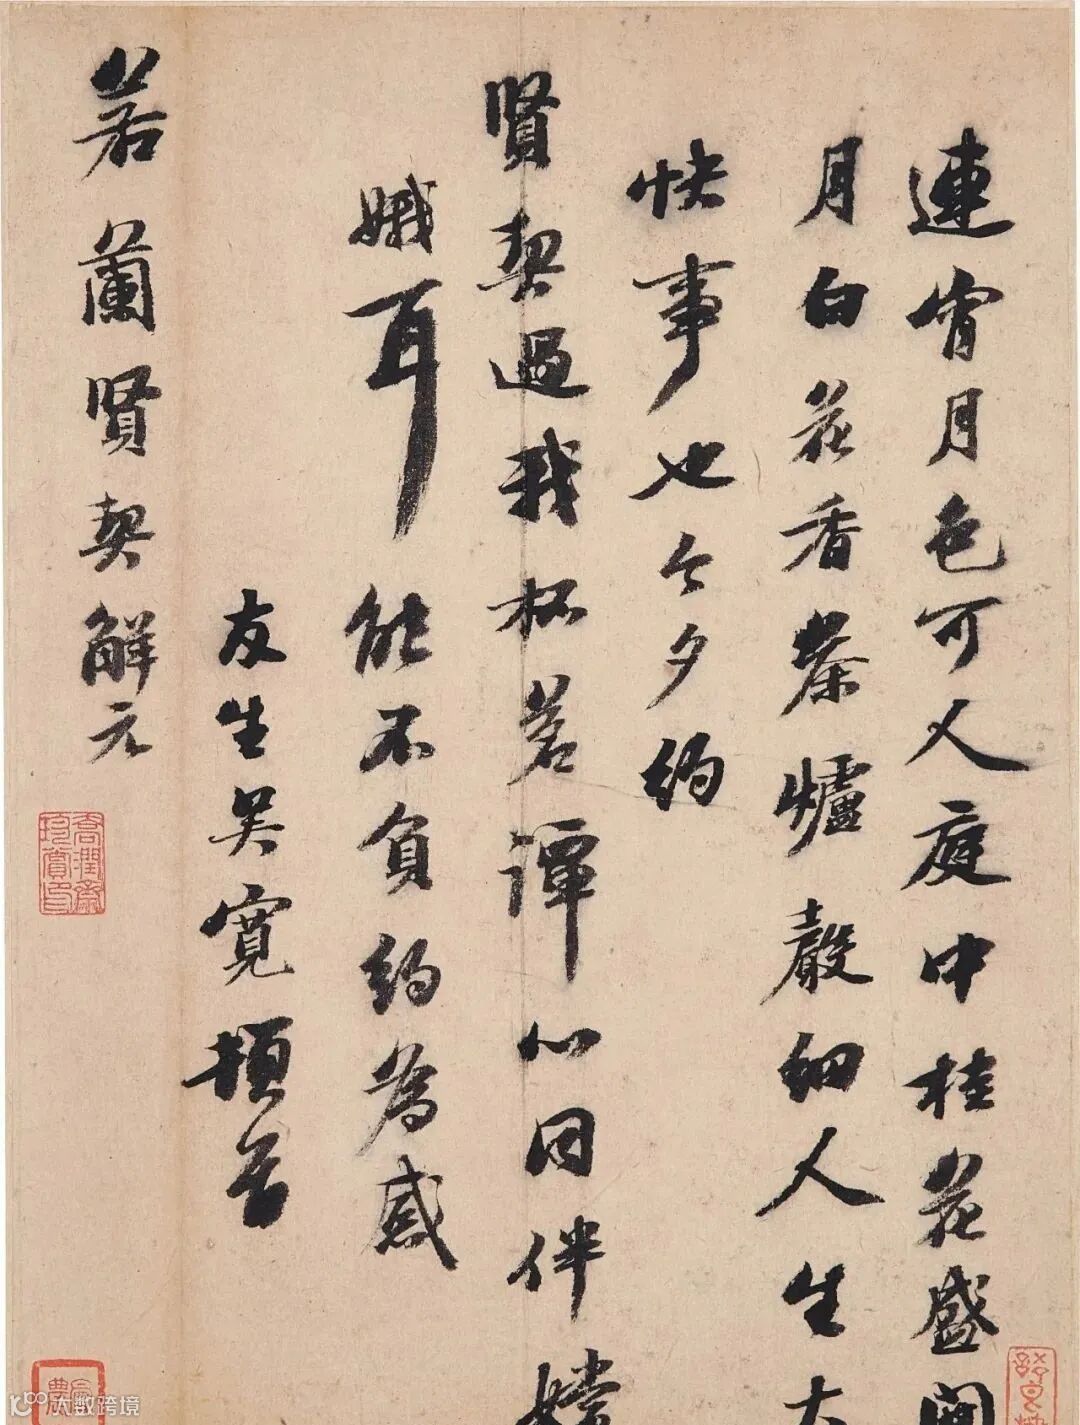 連宵月色可人庭中桂花盛開
月白花香茶爐聲細人生大
快事也今夕約
賢契過我杯茗譚心同伴嫦
娥耳能不負約為感
友生吳寬頓首
若蘭賢契解元
大数跨境